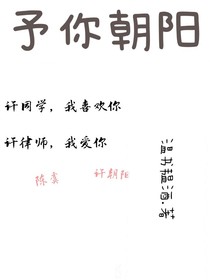 予你朝阳
许同学，我喜欢你
许律师，我爱你
陈露 许朝阳
温书韫酒.著